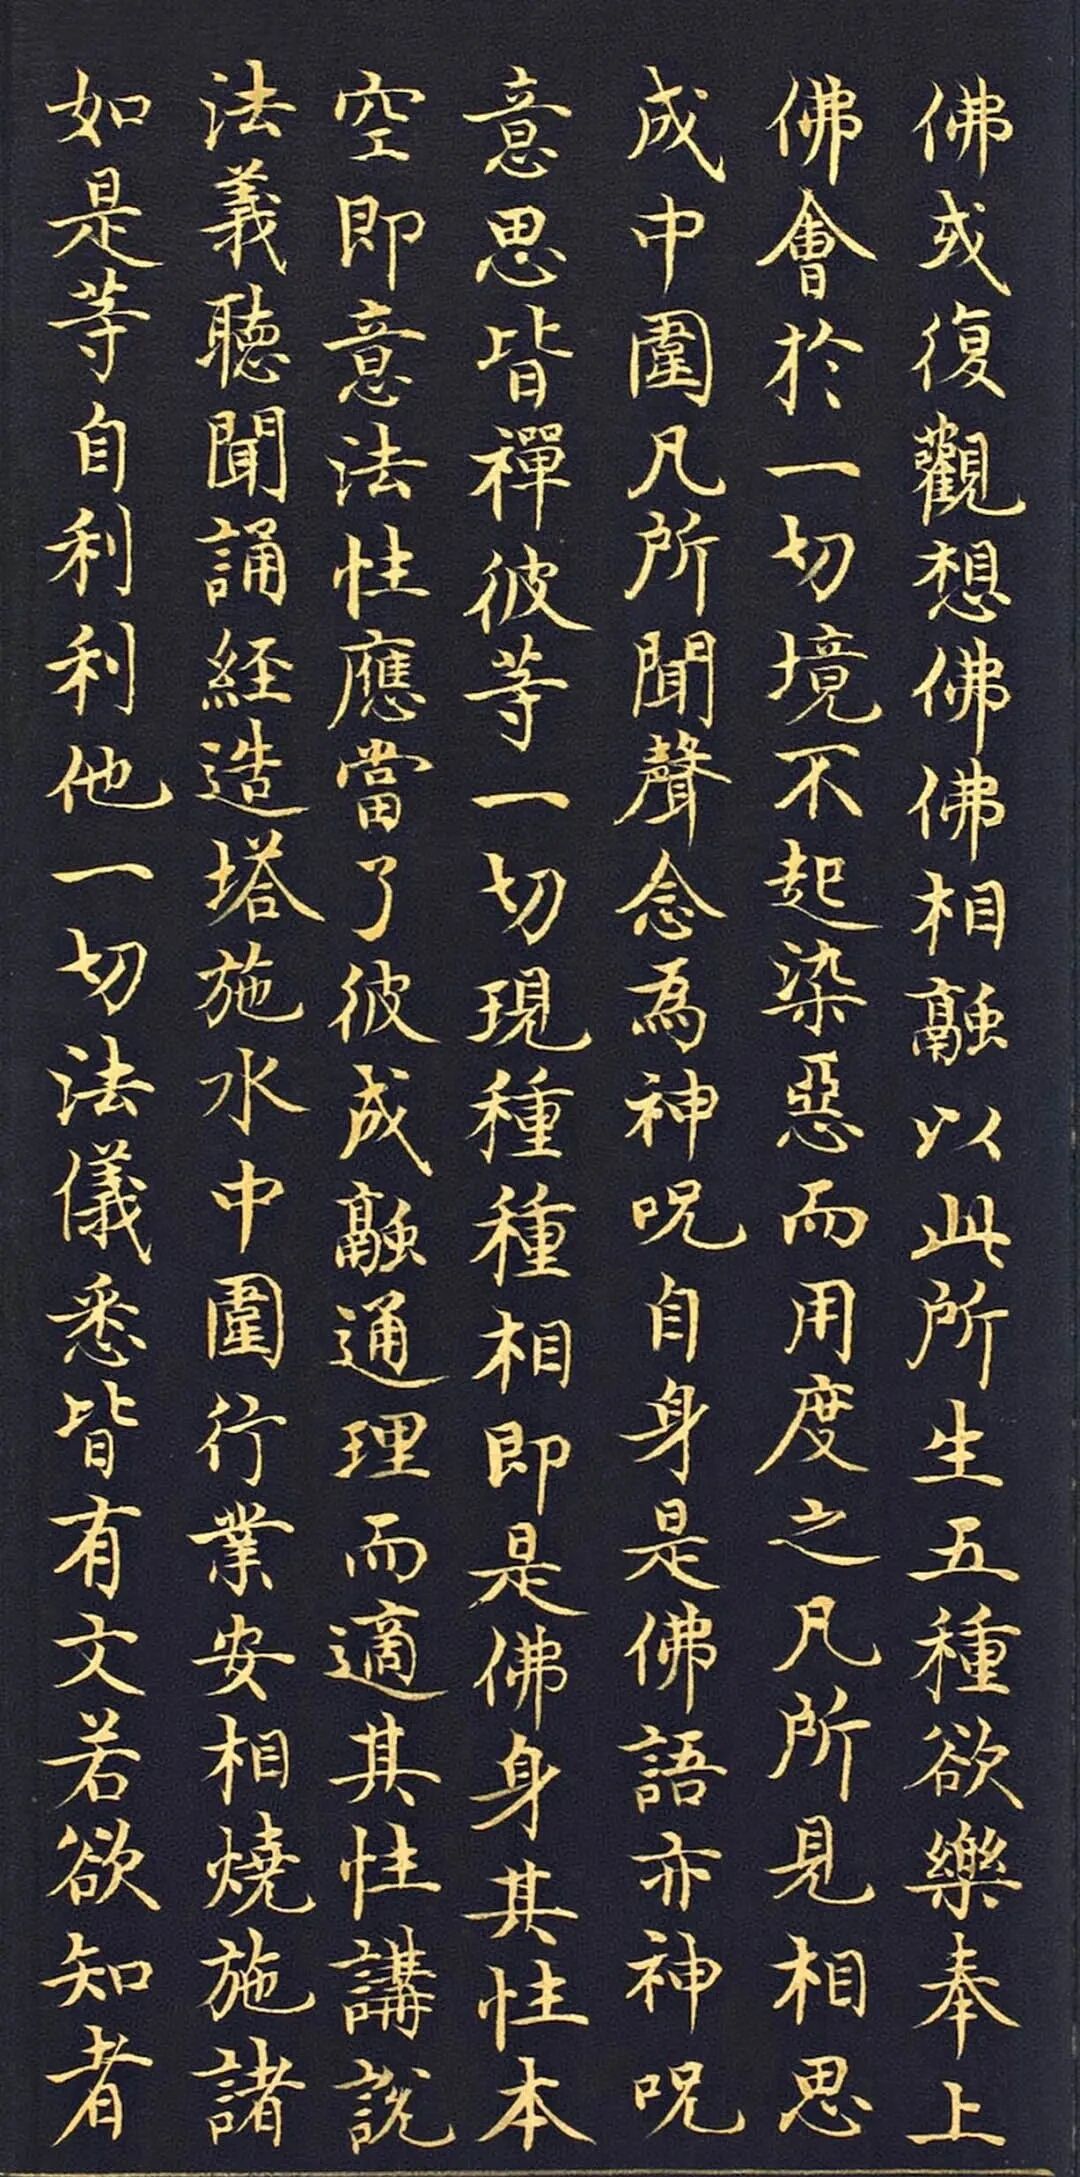 佛或復觀想佛佛相融以此所生五種欲樂奉上
佛會於一切境不起染惡而用度之凡所見相思
成中圍凡所聞聲念為神呪自身是佛語亦神呪
意思皆禪彼等一切現種種相即是佛身其性本
空即意法性應當了彼成融通理而適其性講說
法義聽聞誦経造塔施水中圍行業安相燒施諸
如是等自利利他一切法儀悉皆有文若欲知者